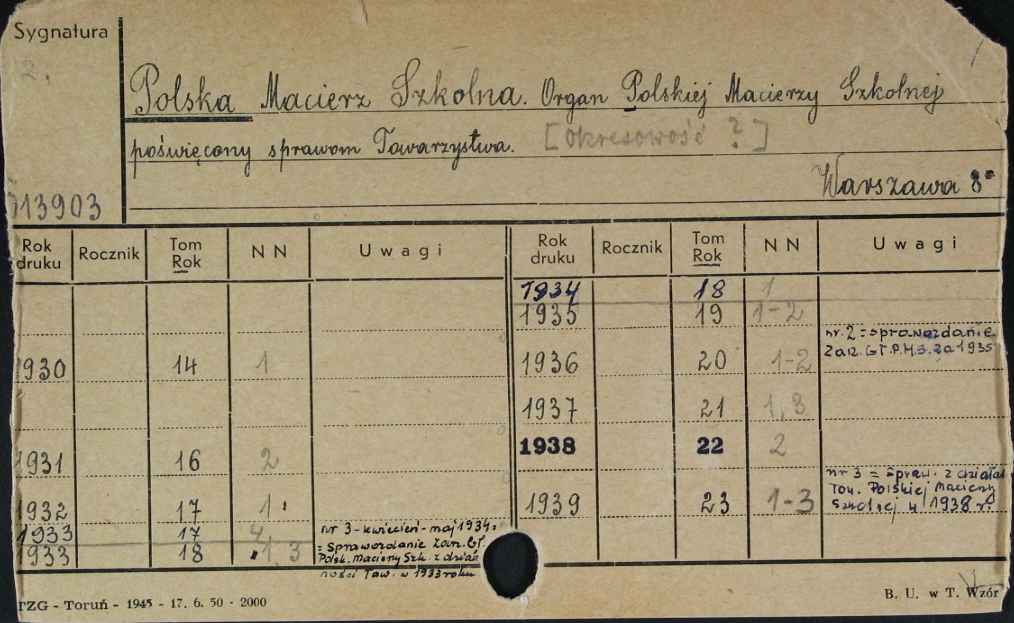 Sygnatura
Polska Macierz Szkolna. Organ Polskiej Macierzy Szkolnej
poświęcony sprawom Towarzystwa. [Okresowość ?]
Warszawa 8°
013903
Rok druku Rocznik Tom Rok NN Uwagi
1930 14 1
1931 16 2
1932 17 1
1933 17 4
1933 18 1.3 nr 3 - kwiecień - maj 1934 =
= Sprawozdanie Zarz. Gł.
Polsk. Macierzy Szk. z dział
ności Tow. w 1933 roku
Rok druku Rocznik Tom Rok NN Uwagi
1934 18 1
1935 19 1-2
nr. 2 = sprawozdanie
Zarz. Gł. P.M.S. za 1935
1936 20 1-2
1937 21 1,3
1938 22 2
nr 3 = spraw. z działal
Tow. Polskiej Macierzy
Szkolnej w 1938 r.
1939 23 1-3
TZG - Toruń - 1945 - 17. 6. 50 - 2000
B. U. w T. Wzór